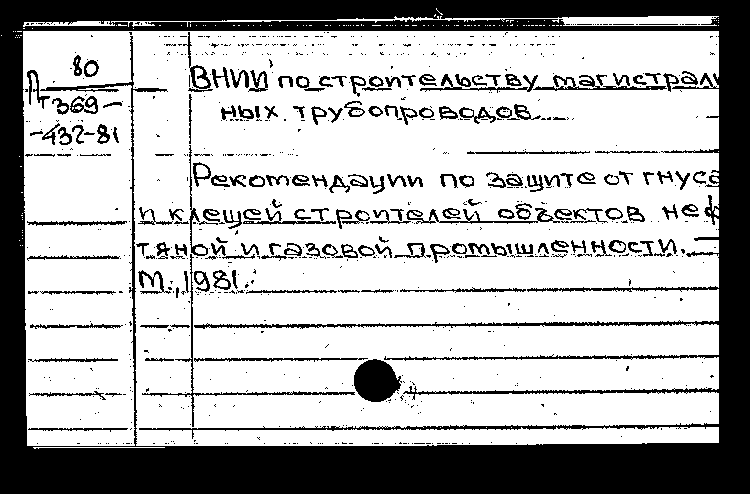 80
Пт369-
-432-81
ВНИИ по строительству магистраль
ных трубопроводов.
Рекомендации по защите от гнуса
и клещей строителей объектов неф
тяной и газовой промышленности. –
М., 1981.